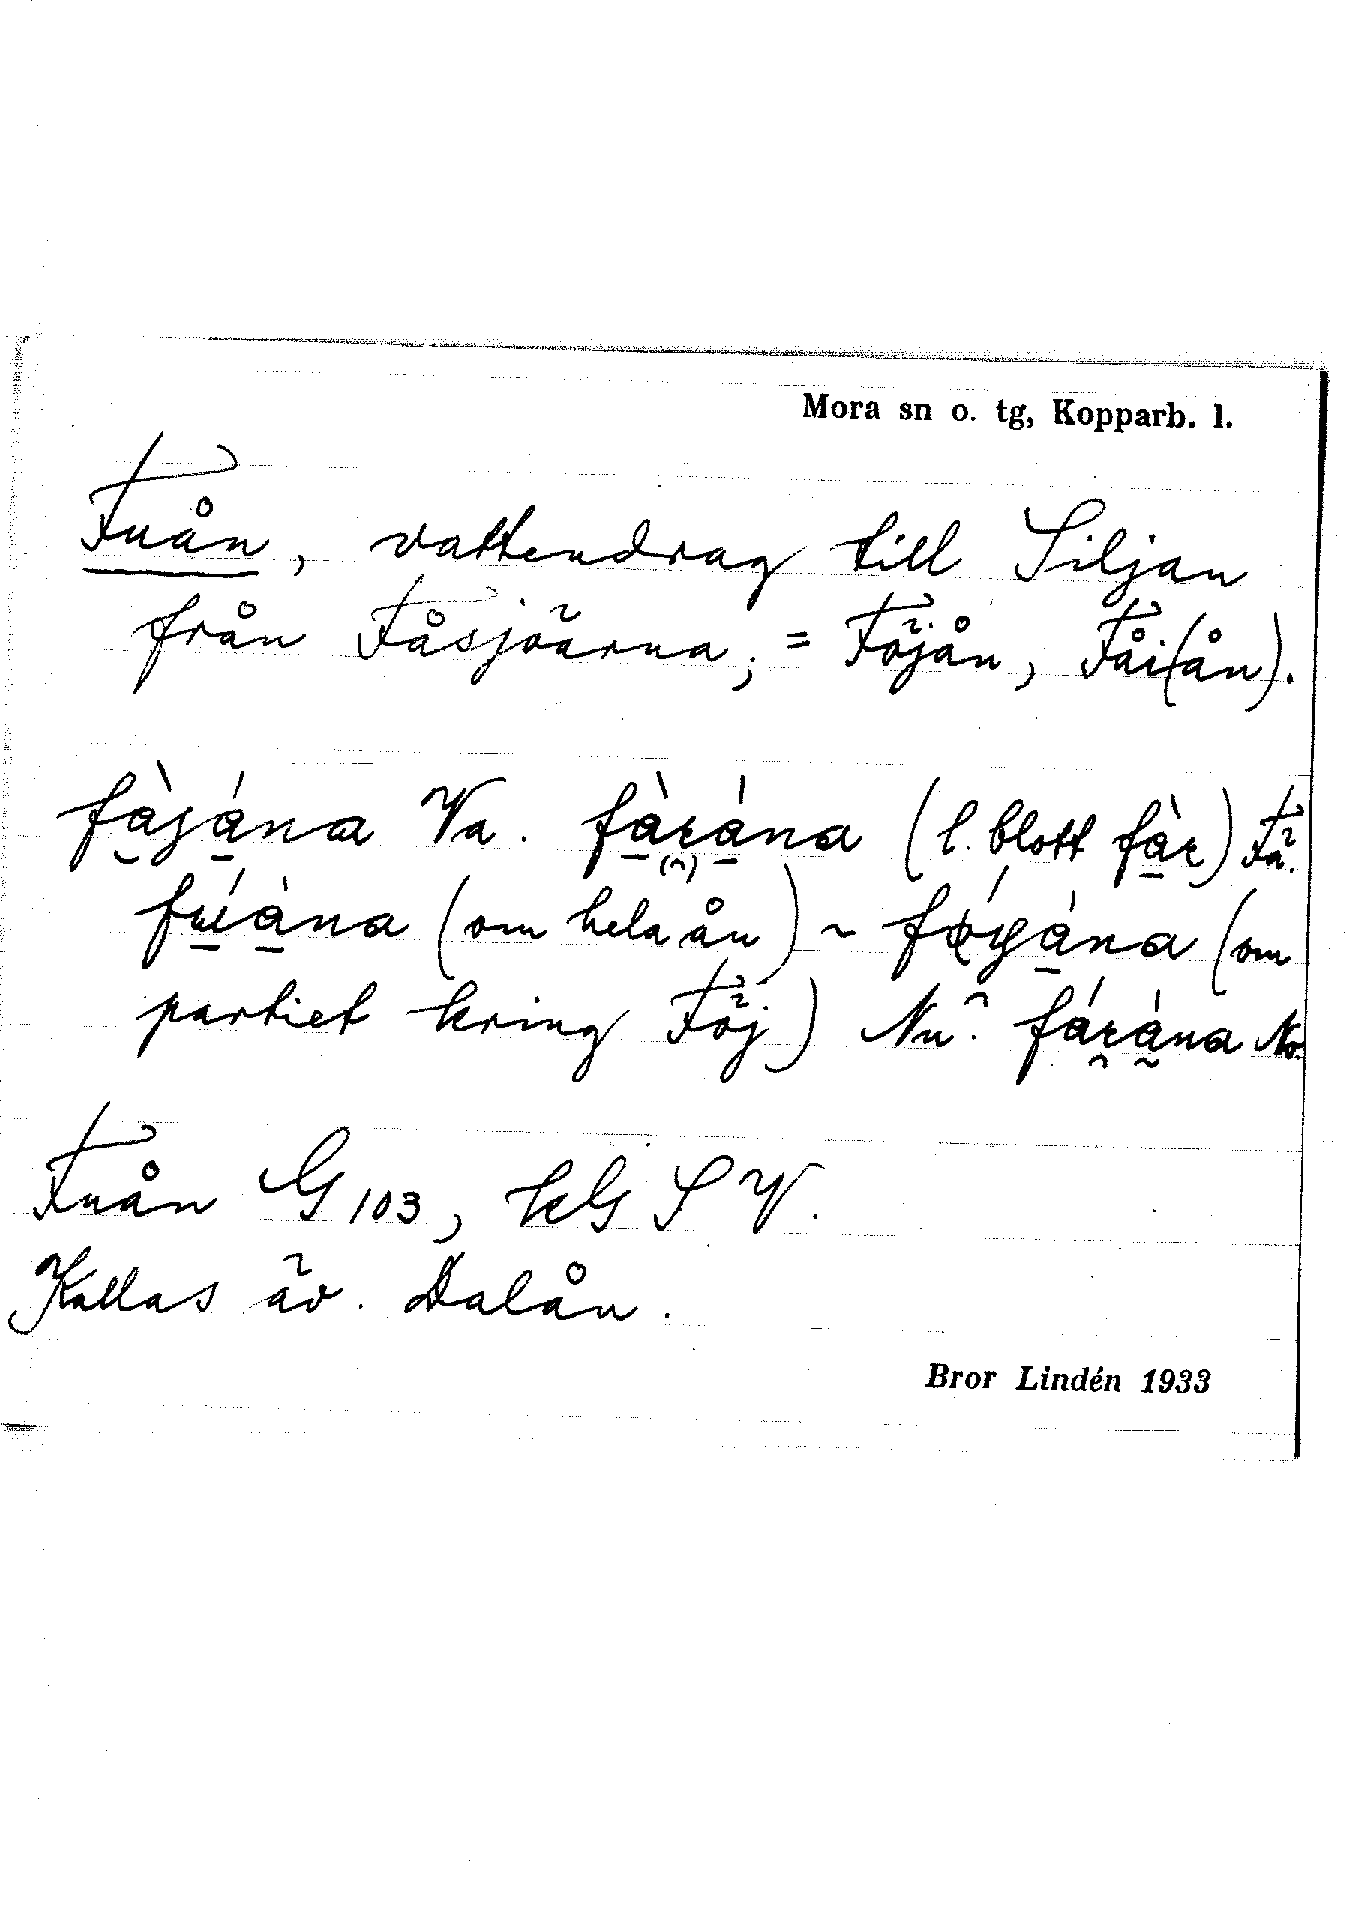 Mora sn o. tg, Kopparb. l.
Fuån, vattendrag till Siljan
från Fåsjöarna; = Föjån, Fåi(ån).
Va. (l. blott fàr) Fä.
(om hela ån) ~ (om
partiet kring Föj) Nu. No.
Fuån G 103, kG S V.
Kallas äv. Dalån.
Bror Lindén 1933